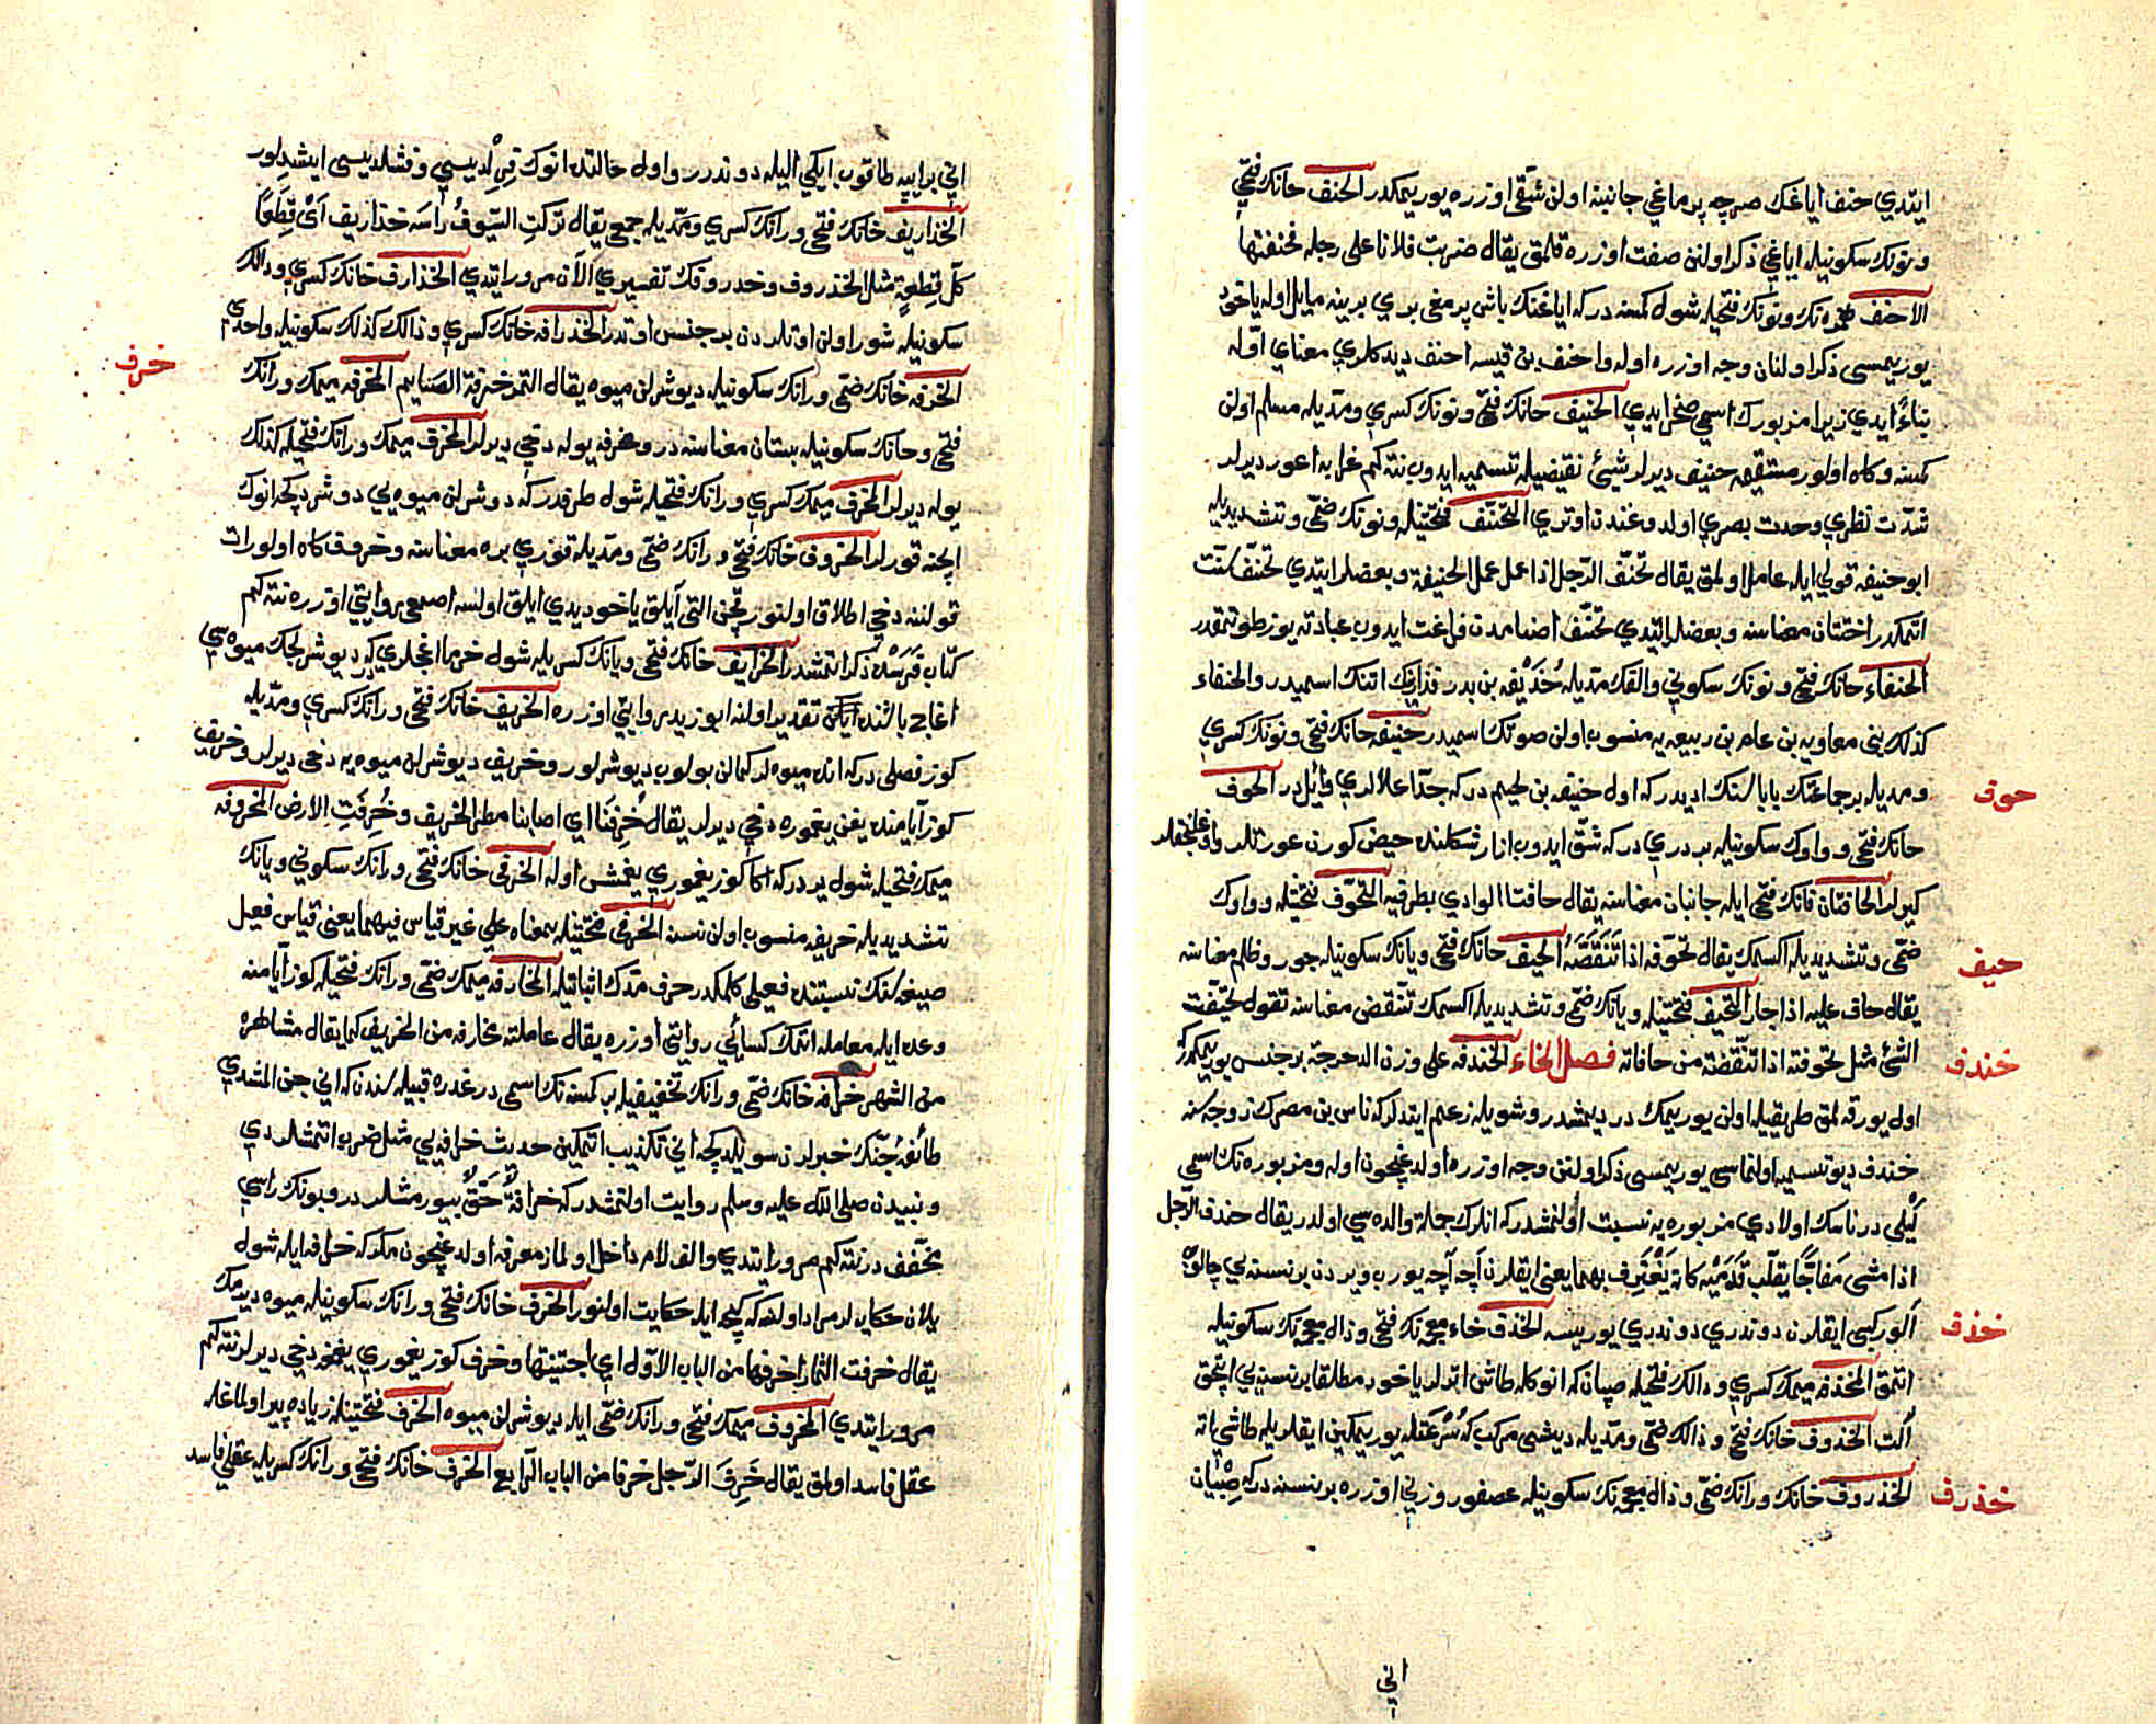 ايتدي حنف اياغك صرچه پرماغي جانبنه اولن شقّی اوزره يوريمكدر الحنف حانك فتحي
ونونك سكونيله اياغي ذكر اولنن صفت اوزره قلمق يقال ضربت فلانا على رجله فحنفتها
الاحنف همزه نك ونونك فتحيله شول كمسه دركه اياغنك باش پرمغي بري برينه مايل اوله ياخود
يوريمسی ذكر اولنان وجه اوزره اوله واحنف بن قيسه احنف ديدكلري معناي اوّله
بناءً ايدي زيرا مزبورك اسمی صخر ايدي الحنيف حانك فتحی ونونك كسري ومدّيله مسلم اولن
كمسه وكاه اولور مستقيمه حنيف ديرلر شيئ نقيضيله تسميه ايدوب نته كم غرابه اعور ديرلر
شدّت نظري وحدت بصري اولدوغندن اوتري التحنّف فتحتينله ونونك ضمّی وتشديديله
ابو حنيفه قولي ايله عامل اولمق يقال تحنّف الرّجل اذا عمل عمل الحنيفة وبعضلر ايتدي تحنّف سنّت
اتمكدر اختتان معناسنه وبعضلر ايتدي تحنّف اصنامدن فراغت ايدوب عبادته يوز طوتمقدر
الحنفاء حانك فتحی ونونك سكوني والفك مدّيله حُذَيْفه بن بدر فزارينك اتنك اسميدر والحنفاء
كذلك بني معاويه بن عامر بن ربيعه يه منسوب اولن صونك اسميدر حنيفه حانك فتحی ونونك كسري
ومديله بر جماعتك بابالرينك اديدر كه اول حنيفه بن لجيم دركه جدّ اعلالري وائل در الحوف
حوف
حانك فتحی وواوك سكونيله بر دري در كه شقّ ايدوب ازار شكلنده حيض كورن عورتلر واوغلنجقلر
كيرلر الحافتان فانك فتحی ايله جانبان معناسنه يقال حافتا الوادي بطرفيه التحوّف فتحتينله وواوك
ضمّی وتشديديله اكسمك يقال تحوّفه اذا تَنَقَّصَهُ الحيف حانك فتحی ويانك سكونيله جور وظلم معناسنه
حيف
يقال حاف عليه اذا جار التحيّف فتحتينله ويانك ضمّی وتشديديله اكسمك تنقّص معناسنه تقول تحيّفت
الشئ مثل تحوّفته اذا تنقّصته من حافاته فصل الخاء الخندفه على وزن الدحرجة بر جنس يوريمكدر كه
خندف
اول يورقه لمق طريقيله اولن يوريمك در ديمشدر وشويله زعم ايتدلر كه ناس بن مضرك زوجه سنه
خندف ديو تسميه اولنماسی يوريمسی ذكر اولنن وجه اوزره اولدغيچون اوله ومزبوره نك اسمي
ليلی در ناسك اولادي مزبوره يه نسبت اولنمشدر كه انلرك جمله والده سی اولدر يقال خندف الرّجل
اذا مشی مفاجًّا يقلّب قَدَمَيْه كانه يَغْتَرِف بهما يعني ايقلرن آچه آچه يورب ويردن بر نسنه يي چالوب
الوركبی ايقلرن دوندري دوندري يوريسه الخذف خاء معجمه نك فتحی وذال معجمه نك سكونيله
خذف
اتمق المخذفه ميمك كسري وذالك فتحيله صپان كه انوكله طاش اترلر ياخود مطلقا بر نسنه يي اتجق
الت الخذوف خانك فتحی وذالك ضمّی ومدّيله ديشی مركب كه سُرْعَتله يوريمكدن ايقلريله طاشي اته
الخذروف خانك ورانك ضمّی وذال معجمه نك سكونيله عصفور وزني اوزره بر نسنه دركه صِبْيان
خذرف
اني
اني بر ايپه طاقوب ايكي اليله دوندرر واول حالتده انوك قرلديسی وفشلديسی ايشدلور
الخذاريف خانك فتحی ورانك كسري ومدّيله جمعی يقال تركتِ السّيوفُ رأسَه خذاريف اَیْ قِطَعًا
كلّ قِطعةٍ مثل الخذروف وخدروفك تفسيري الآن مرور ايتدي الخذارف خانك كسري ودالك
سكونيله شور اولن اوتلردن بر جنس اوتدر الخذرافه خانك كسري وذالك كذلك سكونيله واحدي
الخرفه خانك ضمّی ورانك سكونيله ديوشرلن ميوه يقال التمر خرفة الصايم المخرفه ميمك ورانك
خرف
فتحی وخانك سكونيله بستان معناسنه در ومخرفه يوله دخي ديرلر المخرف ميمك ورانك فتحيله كذلك
يوله ديرلر المخرف ميمك كسري ورانك فتحيله شول ظرفدر كه دوشرلن ميوه يي دوشردكجه انوك
ايچنه قورلر الخروف خانك فتحی ورانك ضمّی ومدّيله قوزي بره معناسنه وخروف كاه اولور ات
قولننه دخي اطلاق اولنور قچن التی آيلق ياخود يدي ايلق اولسه اصمعي روايتي اوزره نته كم
كتاب فَرَسْده ذكر اتمشدر الخرايف خانك فتحی ويانك كسريله شول خرما اغجلري كه ديوشرلجك ميوه سی
اغاچ باشنده ايكن تقدير اولنه ابو زيد روايتي اوزره الخريف خانك فتحی ورانك كسري ومدّيله
كوز فصلی دركه انده ميوه لر كمالن بولوب ديوشرلور وخريف ديوشرلن ميوه يه دخی ديرلر وخريف
كوز آيامنده يغن يغموره دخي ديرلر يقال خُرِفْنَا ای اصابنا مطر الخريف وخُرِفَتِ الارض المخروفه
ميمك فتحيله شول ير دركه اكا كوز يغموري يغمش اوله الخرفی خانك فتحی ورانك سكوني ويانك
تشديديله خريفه منسوب اولن نسنه الخرفی فتحتينله بمعناه علی غير قياس فيهما يعني قياس فعيل
صيغه سنك نسبتنده فعيلی كلمكدر حرف مدّك اثباتيله المخارفه ميمك ضمّی ورانك فتحيله كوز آيامنه
وعده ايله معامله اتمك كسائي روايتی اوزره يقال عاملته مخارفه من الخريف كما يقال مشاهره
من الشهر خرافه خانك ضمّی ورانك تخفيفيله بر كمسه نك اسمی در غدره قبيله سندن كه اني جن المشدي
طائفهٔ جنّك خبرلرن سويلدكچه اني تكذيب اتمكين حديث خرافه يي مثل ضرب اتمشلر دي
ونبيدن صلی اللّه عليه وسلم روايت اولنمشدر كه خرافةٌ حَقٌّ بيورمشلردر وبونك راسي
مخفّف در نته كم مرور ايتدي والف لام داخل اولماز معرفه اولدغيچون مكر كه خرافه ايله شول
يلان حكايه لر مراد اولنه كه كيجه ايله حكايت اولنور الخرف خانك فتحی ورانك سكونيله ميوه ديرمك
يقال خرفت الثمار اخرفها من الباب الاوّل ای اجتنيتها وخرف كوز يغموري يغمغه دخي ديرلر نته كم
مرور ايتدي المخروف ميمك فتحی ورانك ضمّی ايله ديوشرلن ميوه الخرف فتحتينله زياده پير اولماغله
عقل فاسد اولمق يقال خَرِفَ الرّجل خرفا من الباب الرّابع الخرف خانك فتحی ورانك كسريله عقلی فاسد